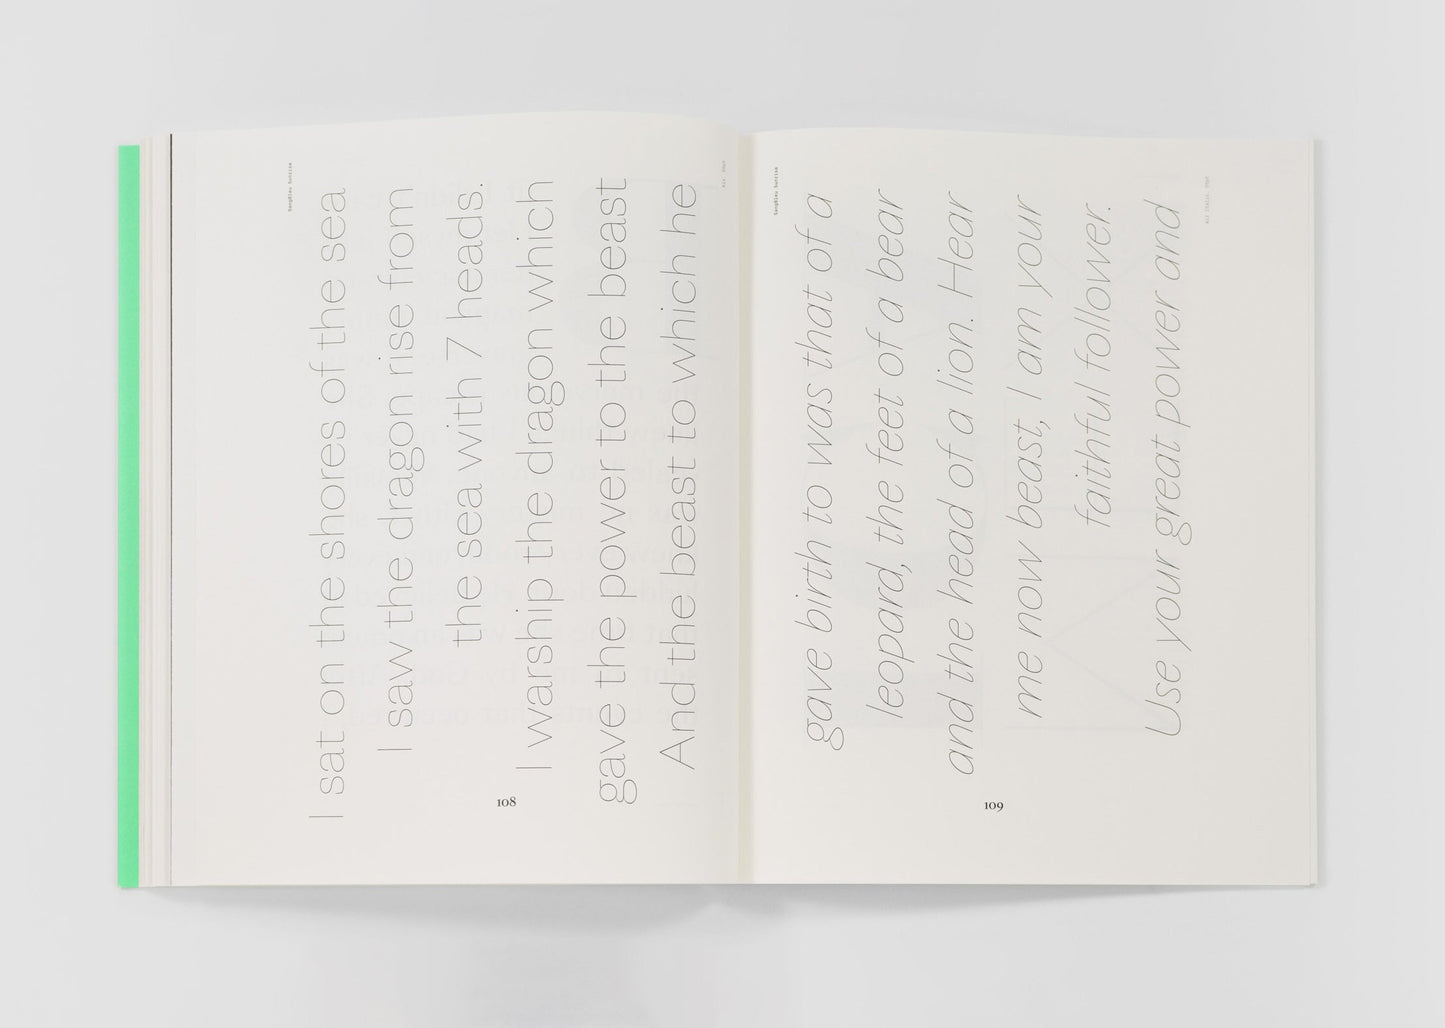 SangBleu Sunrise
Air, 39pt
I sat on the shores of the sea
I saw the dragon rise from
the sea with 7 heads.
I warship the dragon which
gave the power to the beast
And the beast to which he
108
SangBleu Sunrise
Air Italic, 39pt
gave birth to was that of a
leopard, the feet of a bear
and the head of a lion. Hear
me now beast, I am your
faithful follower.
Use your great power and
109